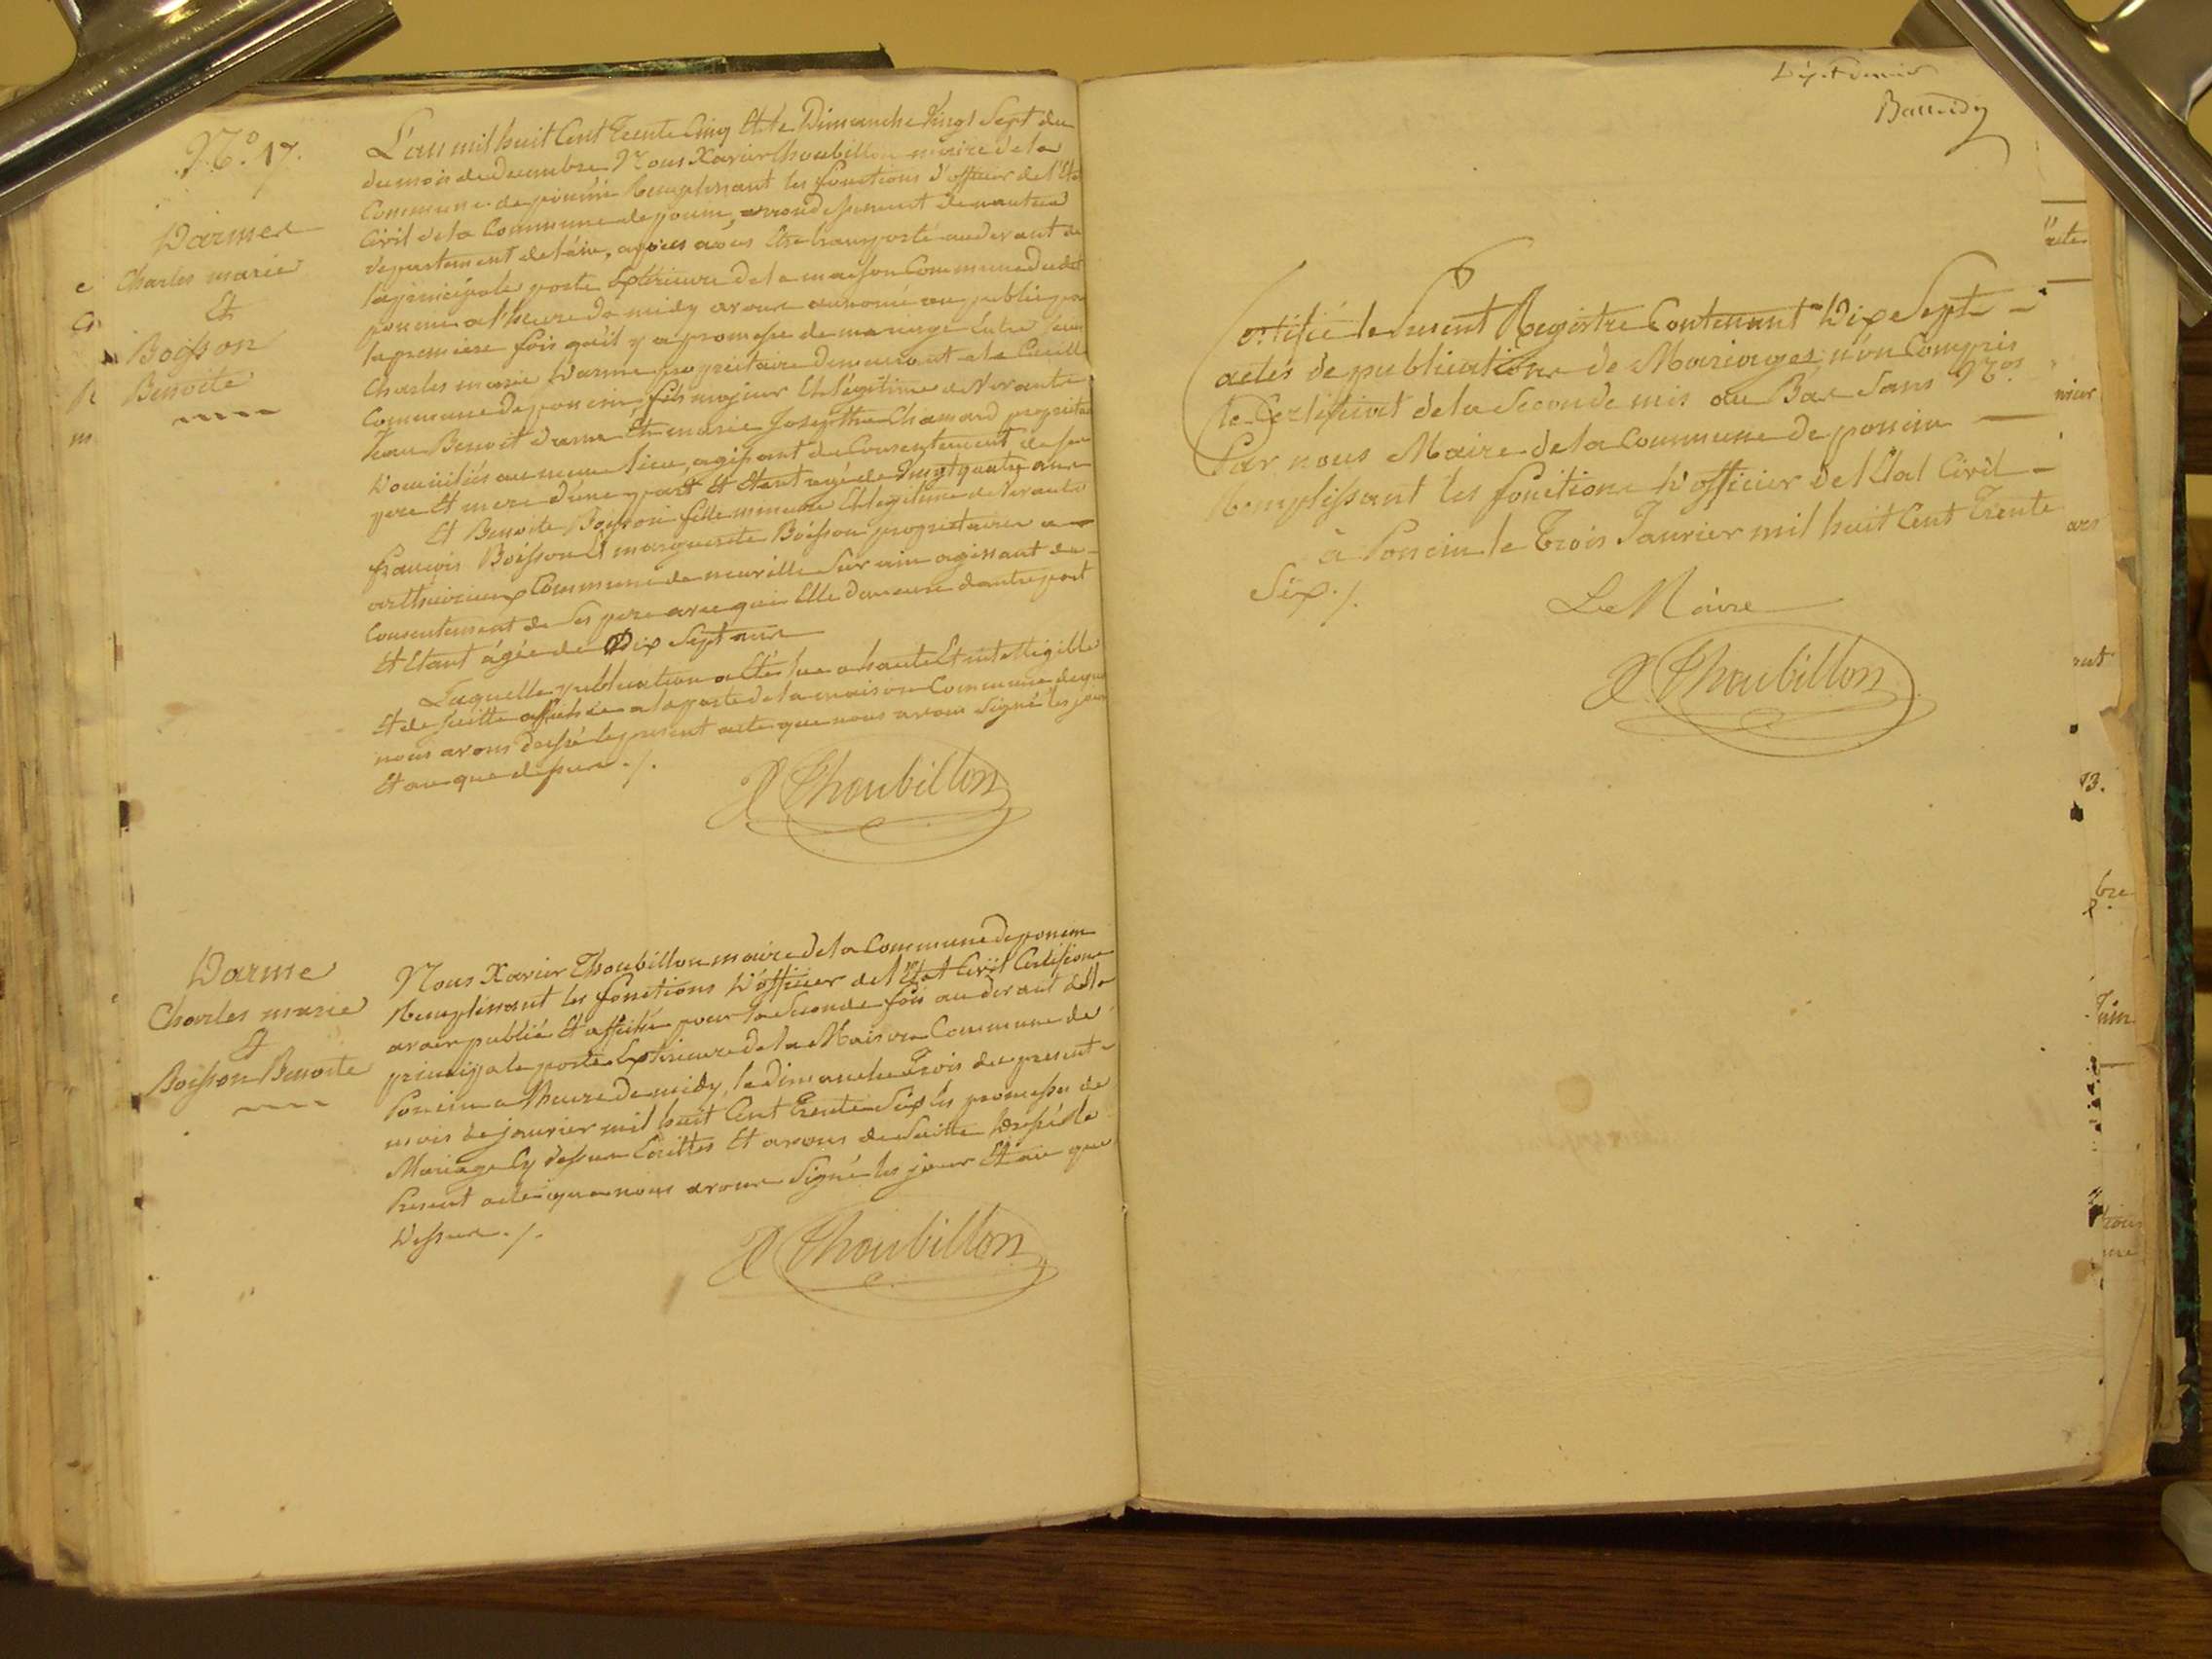 N.° 17.
Darme
Charles marie
&
Boisson
Benoite
L'an mil huit Cent Trente Cinq Et le Dimanche Vingt Sept du
du mois de decembre Nous Xavier Choubillon maire de la
Commune de poncin Remplissant les fonctions d'officier de l'Etat
Civil de la Commune de poncin, arrondissement de nantua
departement de l'ain, apres avoir Etre transporté au devant de
la principale porte Exterieure de la maison Commune dudit
poncin a l'heure de midy avons annoncé au public pour
la premiere fois qu'il y a promesse de mariage Entre Sieur
Charles marie Darme proprietaire demeurant a la Cueille
Commune de poncin fils majeur Et légitime de Vivants
Jean Benoit Darme Et marie Josephte Chanard proprietaires
Domiciliés au meme lieu, agissant du Consentement de ses
pere Et mere d'une part Et Etant agé de Vingt quatre ans
Et Benoite Boisson fille mineure Et legitime de Vivants
françois Boisson Et marguerite Boisson proprietaires a
Commune de neuville Sur ain agissant du
Consentement de Ses pere avec qui Elle demeure d'autre part
Et Etant agée de Dix Sept ans
Laquelle publication a Eté lue a haute Et intelligible
Et de Suitte affichée a la porte de la maison Commune de quoi
nous avons dressé le present acte que nous avons Signé les jour
Et an que dessus ./.
X Choubillon
Darme
Charles marie
&
Boisson Benoite
Nous Xavier Choubillon maire de la Commune de poncin
Remplissant les fonctions D'officier de l'Etat Civil Certifions
avoir publié Et affiché pour la Seconde fois au devant de la
principale porte Exterieure de la Maison Commune de
Poncin a l'heure de midy, le dimanche Trois du present
mois de janvier mil huit Cent Trente Six les promesses de
Mariage Cy dessus Ecrittes Et avons de Suitte Dressé le
Present acte que nous avons Signé les jour Et an que
Dessus ./.
X Choubillon
Certifié le Présent Registre Contenant Dix Sept
actes de publications de Mariages, n'on Compris
le Certificat de la Seconde mis au Bas Sans N.os
Par nous Maire de la Commune de poncin
Remplissant les fonctions D'officier de l'Etat Civil
à Poncin le Trois Janvier mil huit Cent Trente
Six ./.
Le Maire
X. Choubillon